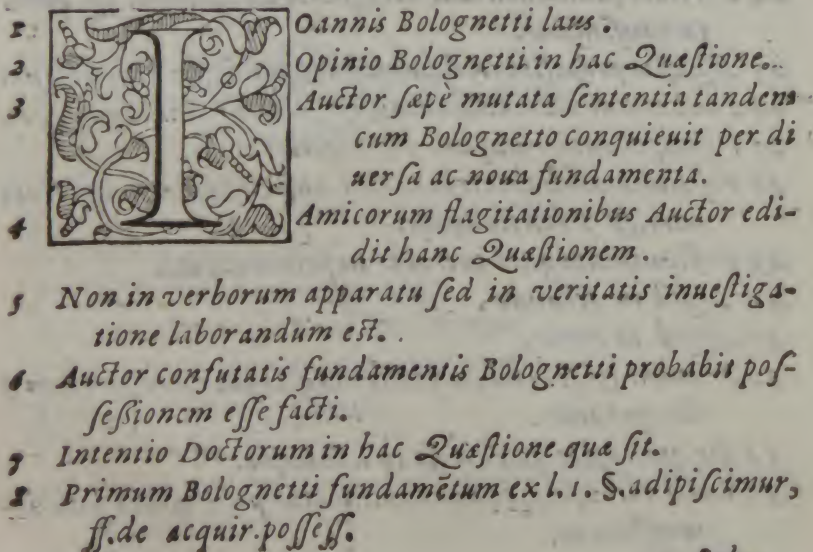 1 IOannis Bolognetti laus.
2 Opinio Bolognetti in hac Quæſtione.
3 Auctor ſæpè mutata ſententia tandem
cum Bolognetto conquieuit per di
uerſa ac noua fundamenta.
4 Amicorum flagitationibus Auctor edi-
dit hanc Quæſtionem.
5 Non in verborum apparatu ſed in veritatis inueſtiga-
tione laborandum eſt.
6 Auctor confutatis fundamentis Bolognetti probabit poſ-
ſeßionem eſſe facti.
7 Intentio Doctorum in hac Quæſtione quæ ſit.
8 Primum Bolognetti fundamẽtum ex l. 1. §. adipiſcimur,
ff. de acquir. poſſeſſ.